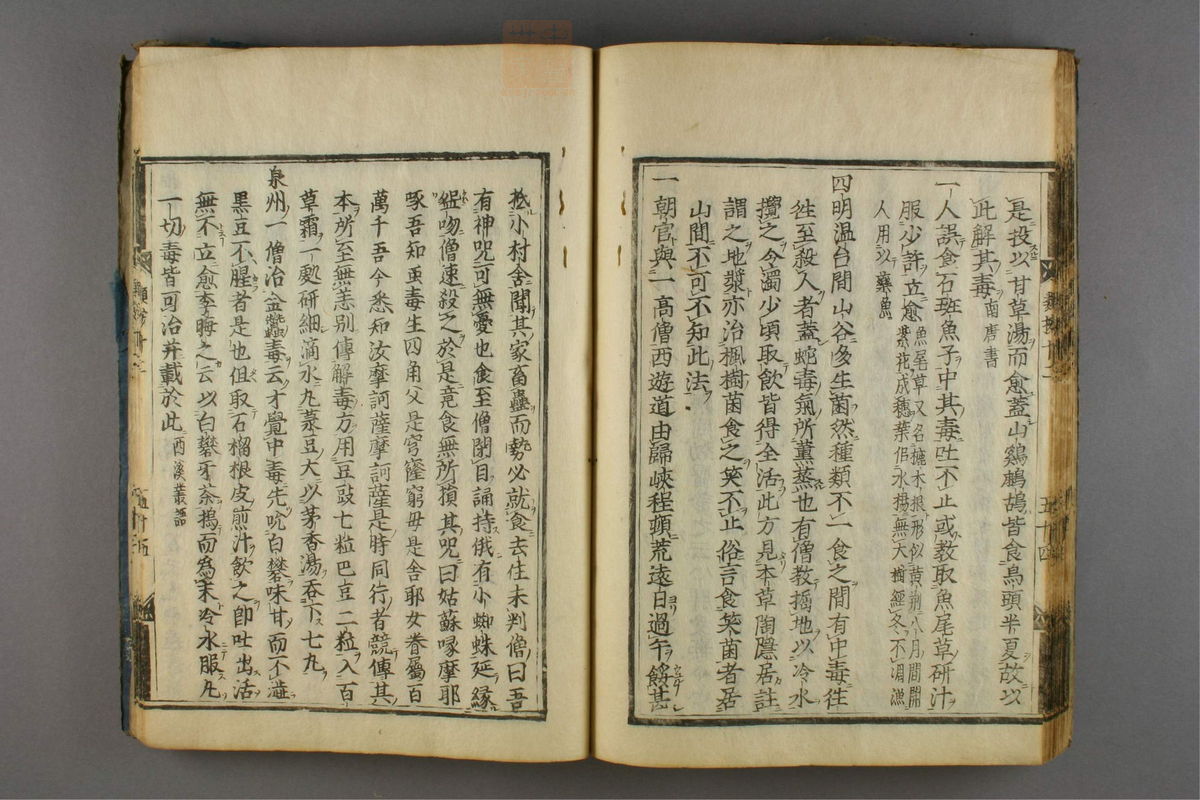 是投以甘草湯而愈蓋山鷄鷓鴣皆食烏頭半夏故以
此解其毒南唐書
一人誤食石斑魚子中其毒吐不止或教取魚尾草研汁
服少許立愈魚尾草又名樚木根形似黃荆八月間開
紫花成穗葉似水楊無大樹經冬不凋漁
人用以藥魚
四明温台間山谷多生菌然種類不一食之間有中毒徃
徃至殺人者蓋蛇毒氣所薰蒸也有僧教掘地以冷水
攪之令濁少頃取飲皆得全活此方見本草陶隱居註
謂之地漿亦治楓樹菌食之笑不止俗言食笑菌者居
山間不可不知此法
一朝官與一高僧西遊道由歸峽程頓荒遠日過午餒甚
抵小村舍聞其家畜蠱而勢必就食去住未判僧曰吾
有神咒可無憂也食至僧閉目誦持俄有小蜘蛛延緣
盌吻僧速殺之於是竟食無所損其咒曰姑蘇啄摩耶
啄吾知蠱毒生四角父是穹窿窮母是舍耶女眷屬百
萬千吾今悉知汝摩訶薩摩訶薩是時同行者競傳其
本所至無恙别傳解毒方用豆豉七粒巴豆二粒入百
草霜一處研細滴水丸菉豆大以茅香湯吞下七丸
泉州一僧治金蠶毒云才覺中毒先吮白礬味甘而不澁
黑豆不腥者是也但取石榴根皮煎汁飲之卽吐出活
無不立愈李晦之云以白礬牙茶搗而爲末冷水服凡
一切毒皆可治并載於此西溪叢語
五十四